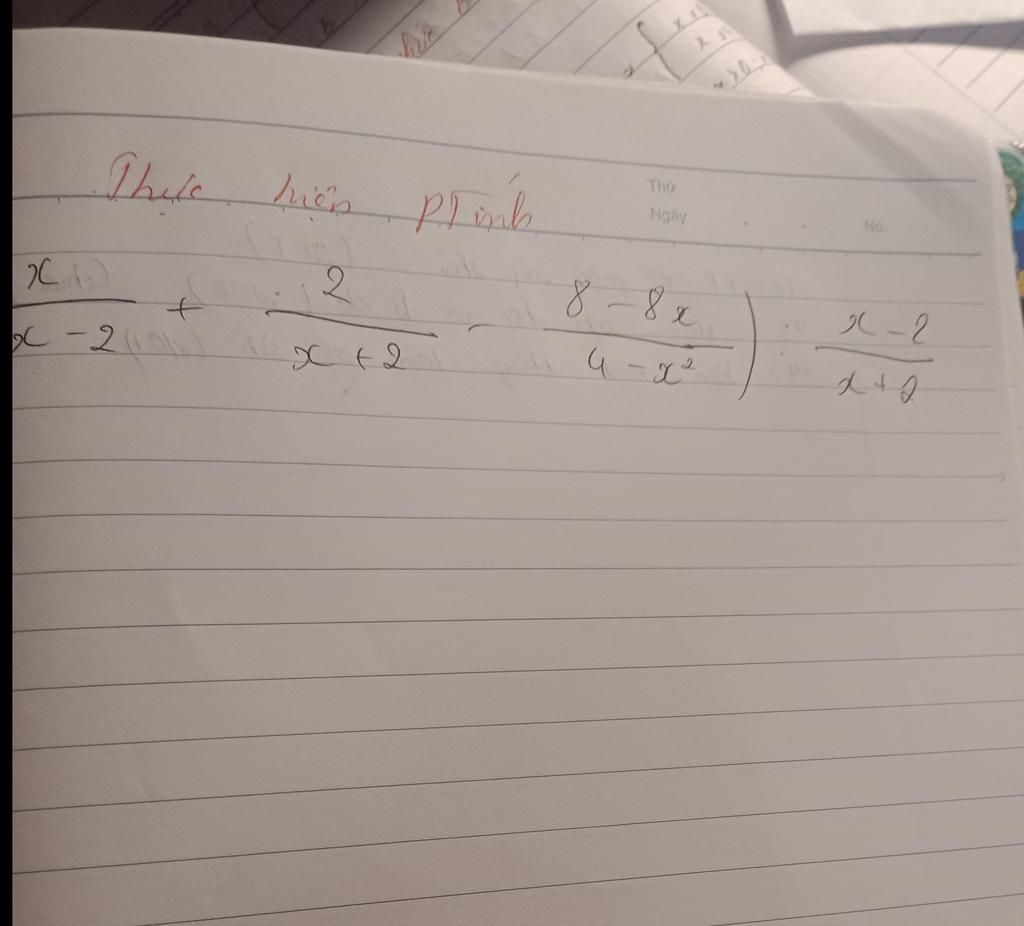 Thực hiện pTính
Thứ
Ngày
No.
x/(x - 2) + 2/(x + 2) - (8 - 8x)/(4 - x²)) : (x - 2)/(x + 2)